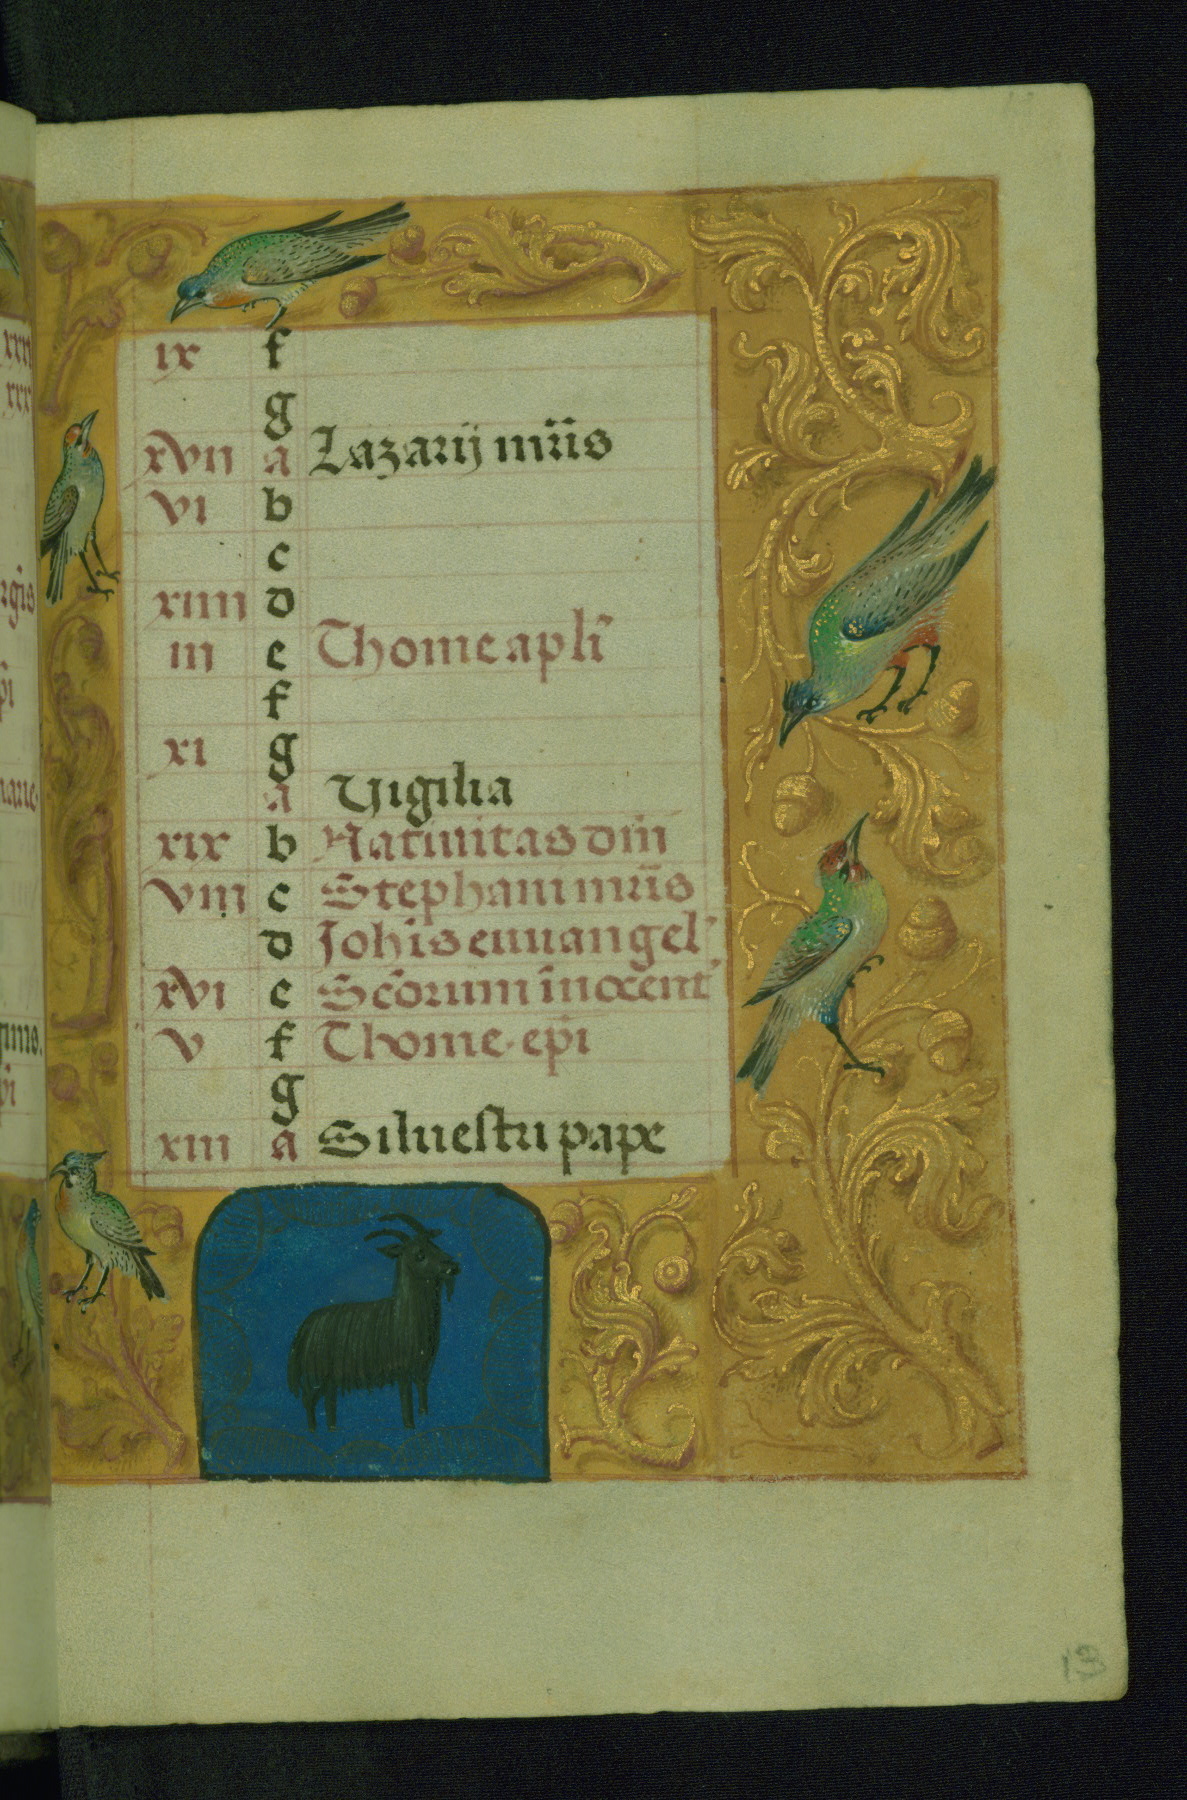 ix f
g
xvii a Lazarij mr̃is
vi b
c
xiiii d
iii e Thome apl̃i
f
xi g
a Vigilia
xix b Natiuitas dñi
viii c Stephani mr̃is
d Joh̃is euuangel'
xvi e Sc̃orum ĩnocent'
v f Thome ep̃i
g
xiii a Siluestri pape
13